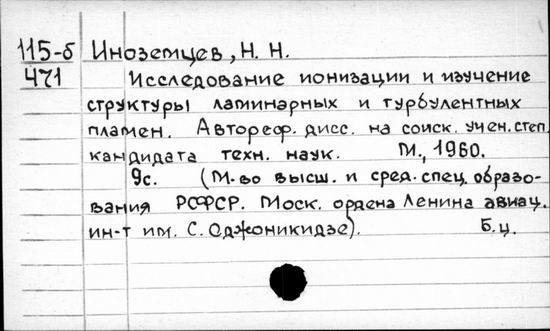 115-б Иноземцев, Н. Н.
471 Исследование ионизации и изучение
структуры ламинарных и турбулентных
пламен. Автореф. дисс. на соиск. учен. степ.
кандидата техн. наук. М., 1960.
9с. (М-во высш. и сред. спец. образо-
вания РСФСР. Моск. ордена Ленина авиац.
ин-т им. С. Оджоникидзе). Б.ц.